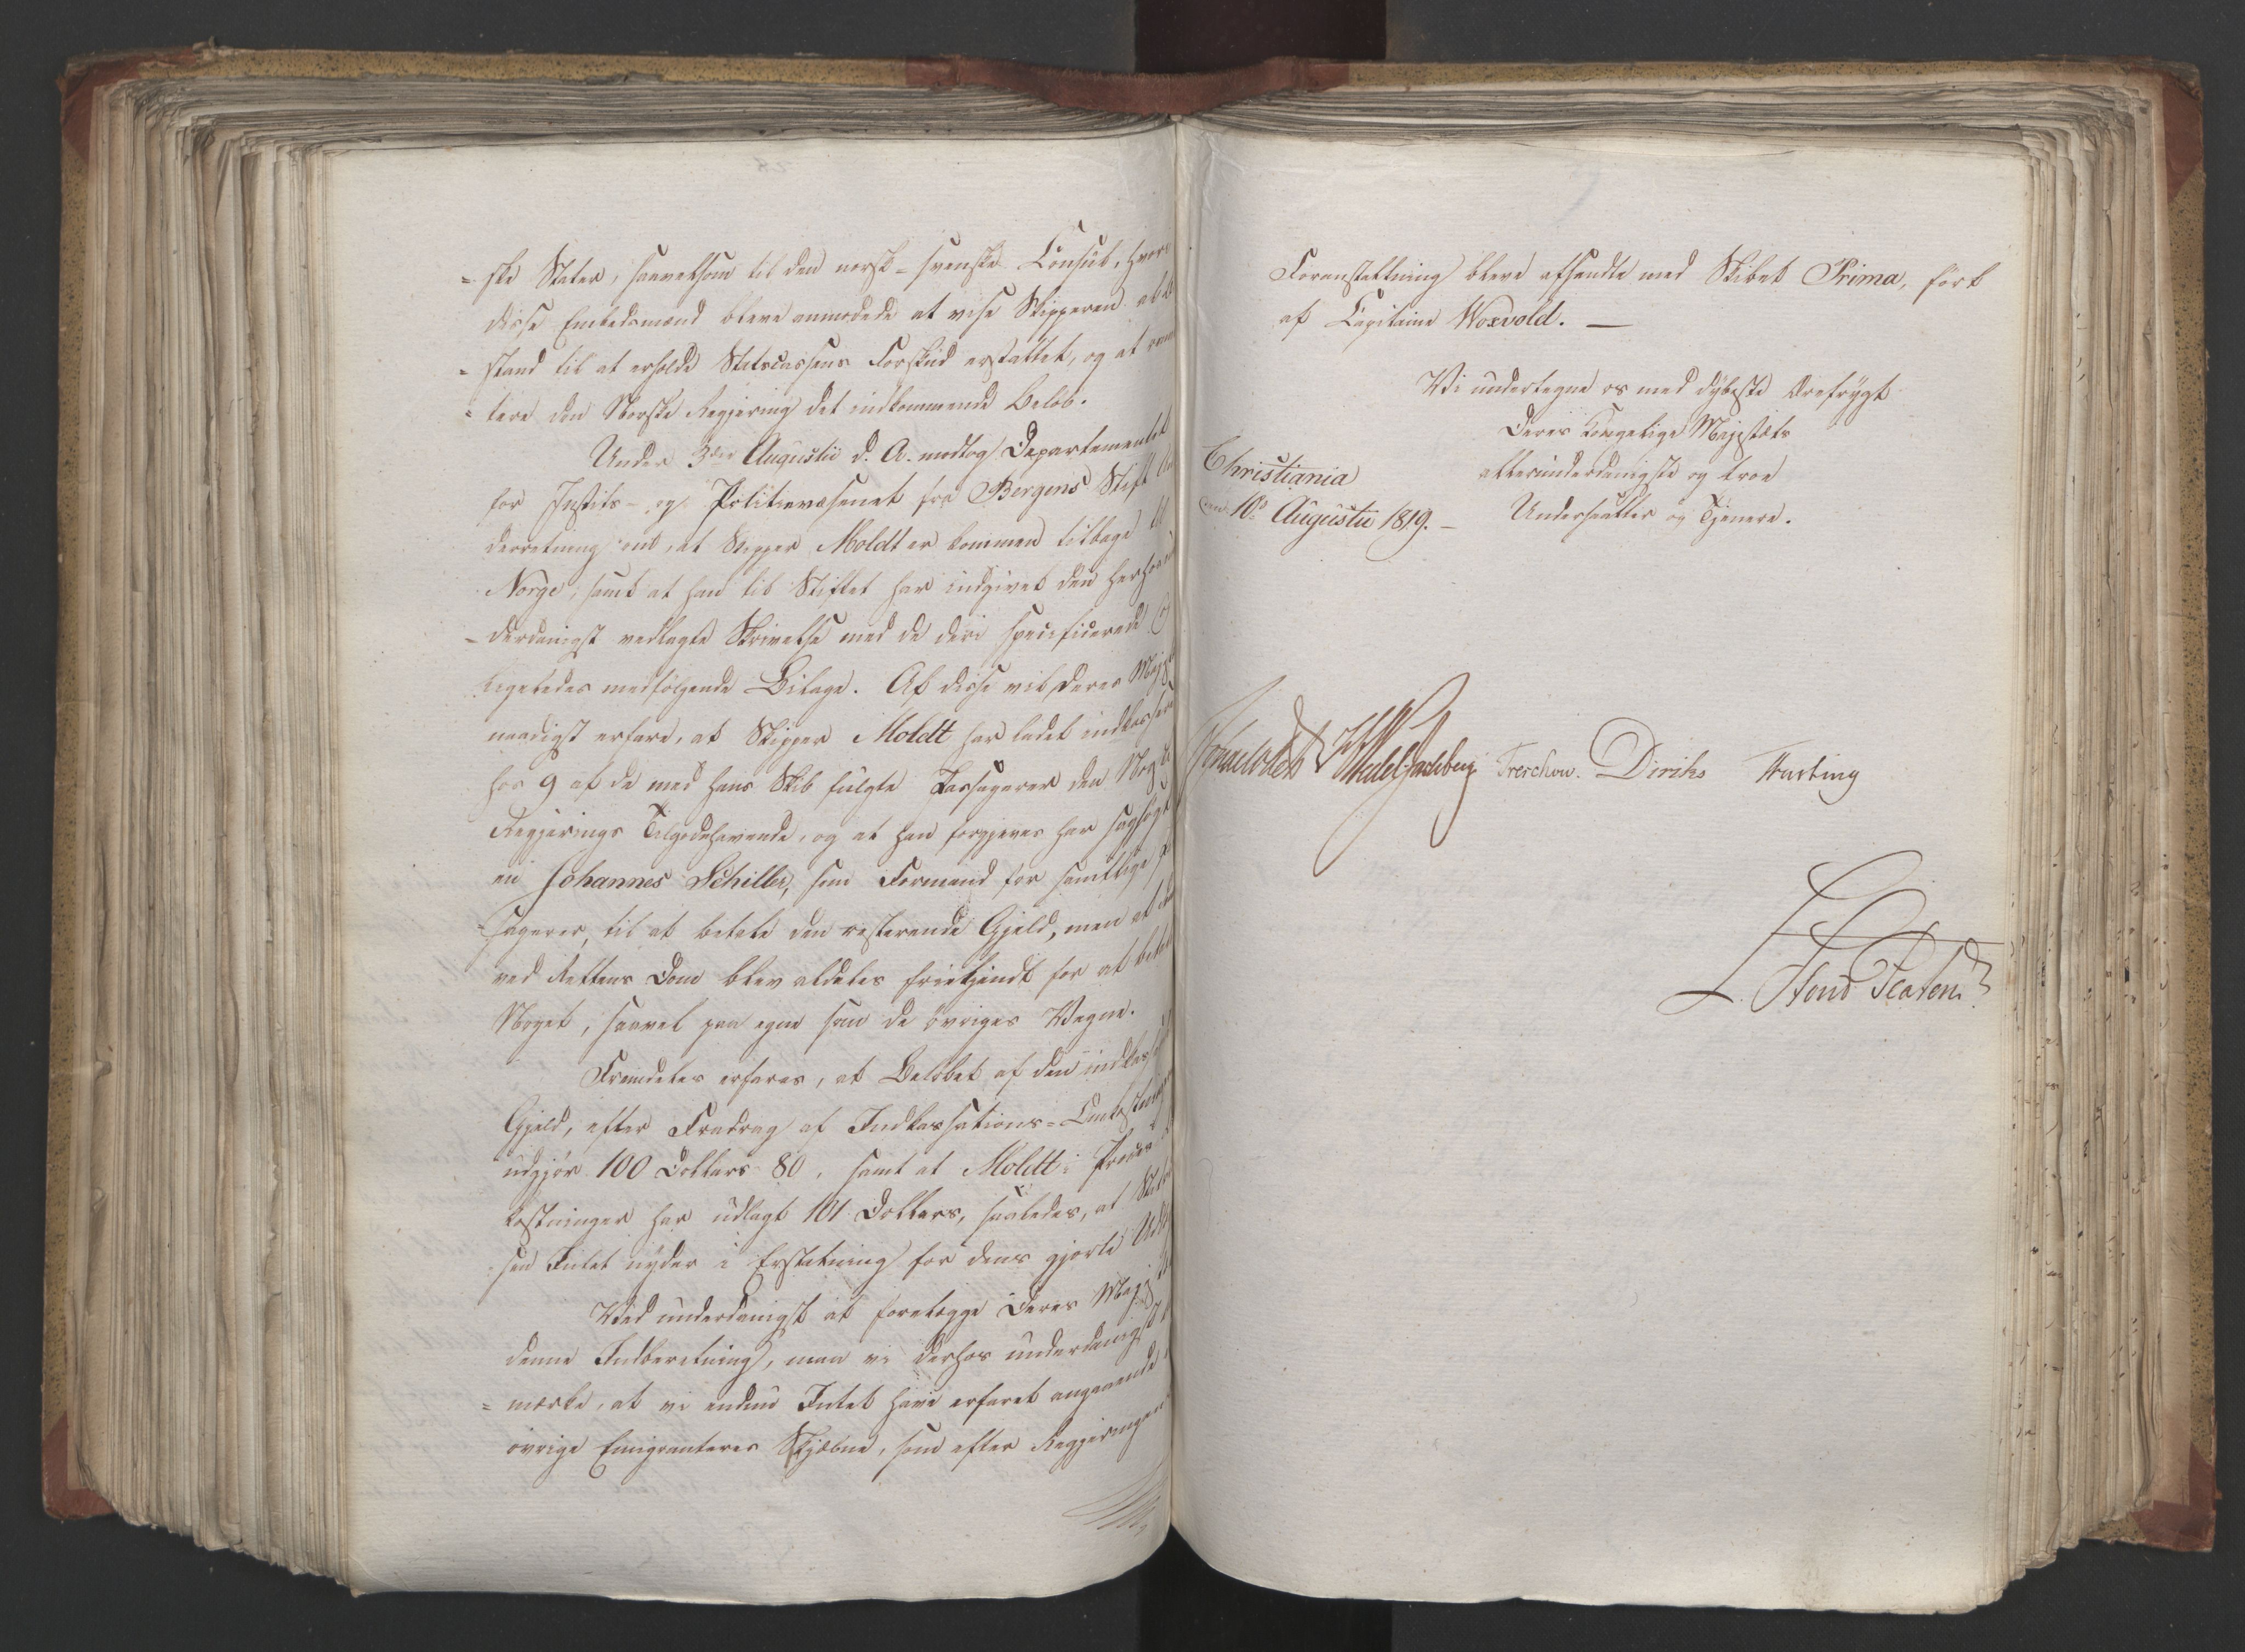 -ske Stater, saavelsom til den norsk-svenske Consul, hvor
disse Embedsmænd bleve anmodede at vise Skipperen al
-stand til at erholde Statscassens Forskud erstattet, og at
-tere den Norske Regjering det indkommende Beløb.
Under 3die Augustii d. A. modtog Departementet
for Justits- og Politievæsenet fra Bergens Stift
derretning om, at Skipper Moldt er kommen tilbage til
Norge, samt at han til Stiftet har indgivet den herhos
-derdanigst vedlagte Skrivelse med de deri specificerede
ligeledes medfølgende Bilage. Af disse vil Deres Maj
naadigst erfare, at Skipper Moldt har ladet indkassere
hos 9 af de med hans Skib fulgte Passagerer den Norske
Regjerings Tilgodehavende, og at han forgjeves har sagsøgt
en Johannes Schiller, som Formand for samtlige
-sagerer, til at betale den resterende Gjeld, men at
ved Rettens Dom blev aldeles friekjendt for at betale
Noget, saavel paa egne som de øvriges Vegne.
Fremdeles erfares, at Beløbet af den indkass
Gjeld, efter Fradrag af Indkassations-Omkostninger
udgjør 100 Dollars 80, samt at Moldt i Proces
kostninger har udlagt 101 Dollars, saaledes, at Stats
sen Intet nyder i Erstatning for dens gjorte Udl
Ved underdanigst at forelægge Deres Maj
denne Indberetning, maa vi derhos underdanigst
-mærke, at vi endnu Intet have erfaret angaaende
øvrige Emigranteres Skjæbne, som efter Regjeringens
Foranstaltning bleve afsendte med Skibet Prima, ført
af Capitaine Woxvold. —
Vi undertegne os med dybeste Ærefrygt
Deres Kongelige Majestæts
allerunderdanigste og troe
Undersaatter og Tjenere.
Christiania
den 10de Augustii 1819. —
Wedel-Jarlsberg Treschow. Diriks